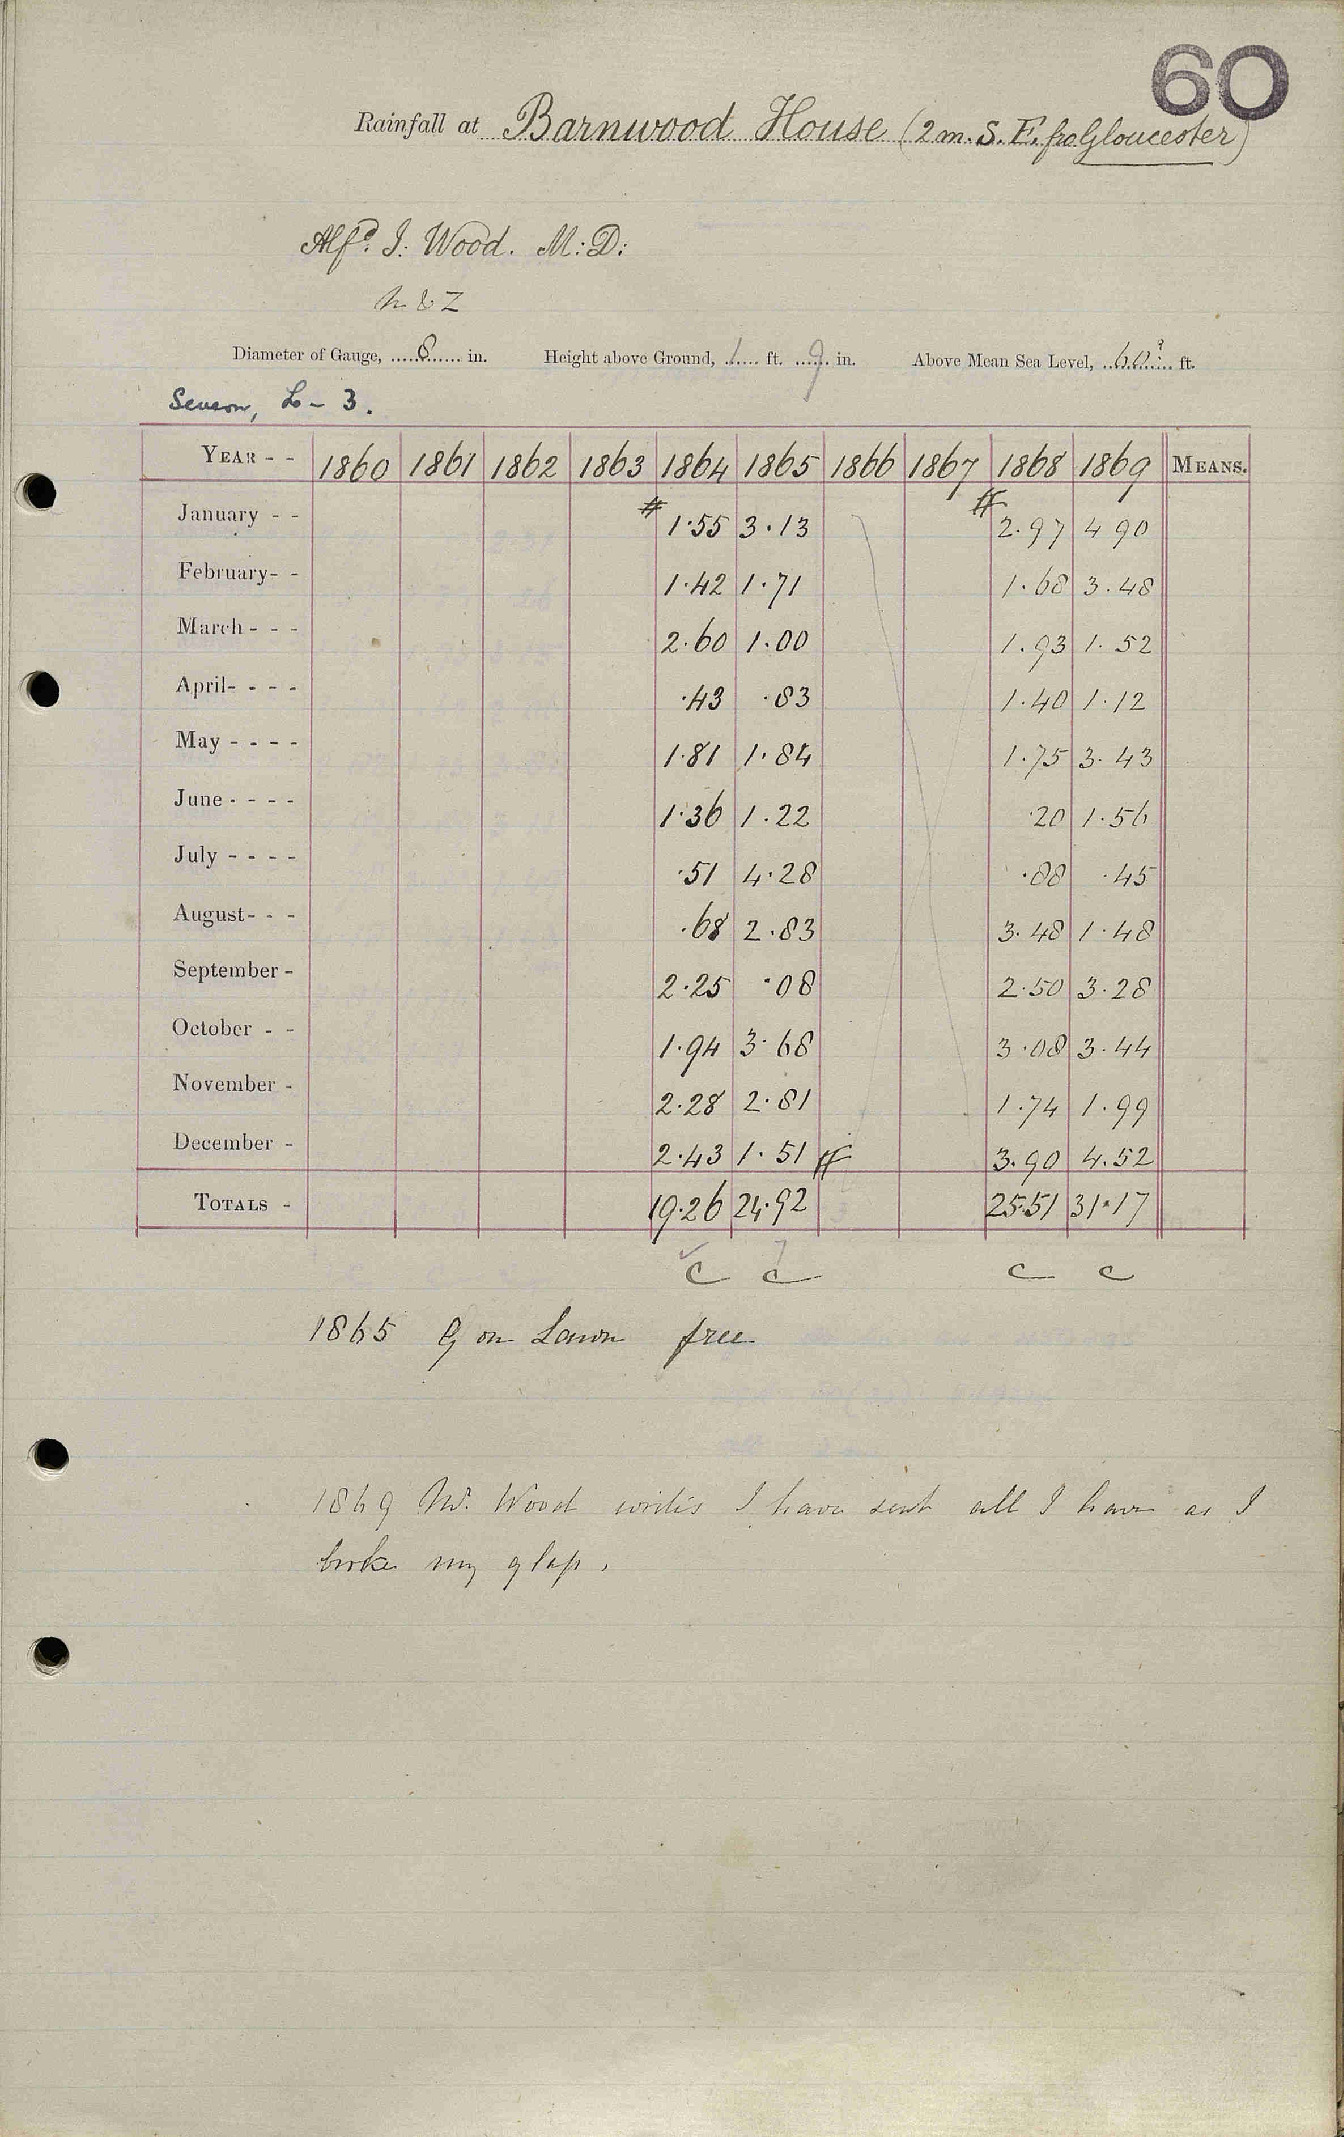 60
Rainfall at Barnwood House (2 m. S. E. fro Gloucester)
Alfd. J. Wood. M: D:
Diameter of Gauge, 8 in. Height above Ground, 1 ft. 9 in. Above Mean Sea Level, 60? ft.
Season, L - 3.
YEAR - - 1860 1861 1862 1863 1864 1865 1866 1867 1868 1869 MEANS.
January - - # 1.55 3.13 # 2.97 4 90
February - - 1.42 1.71 1.68 3.48
March - - - 2.60 1.00 1.93 1.52
April - - - - .43 .83 1.40 1.12
May - - - - 1.81 1.84 1.75 3.43
June - - - - 1.36 1.22 .20 1.56
July - - - - .51 4.28 .88 .45
August - - - .68 2.83 3.48 1.48
September - 2.25 .08 2.50 3.28
October - - 1.94 3.68 3.08 3.44
November - 2.28 2.81 1.74 1.99
December - 2.43 1.51 # 3.90 4.52
TOTALS - 19.26 24.92 25.51 31.17
c c c c
1865 G on Lawn free
1869 Mr. Wood writes I have sent all I have as I
broke my glass.